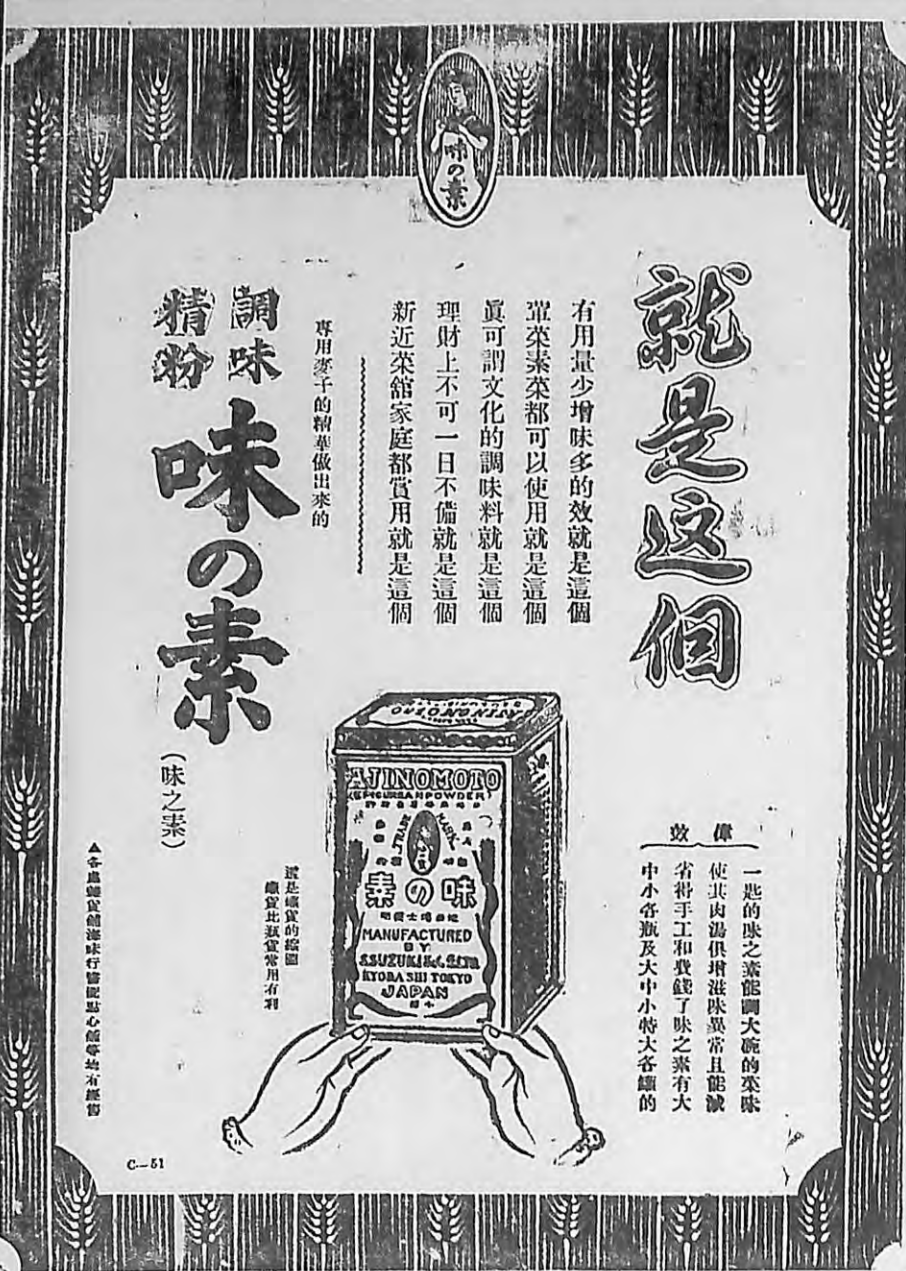 味の素
就是这個
有用量少增味多的效就是這個
葷菜素菜都可以使用就是這個
眞可謂文化的調味料就是這個
理財上不可一日不備就是這個
新近菜舘家庭都賞用就是這個
專用麥子的精華做出來的
調味
精粉
味の素
(味之素)
偉效
一匙的味之素能調大碗的菜味
使其肉湯俱增滋味異常且能減
省得手工和費錢了味之素有大
中小各瓶及大中小特大各罐的
AJINOMOTO
AJINOMOTO
(EPICUREAN POWDER)
TRADE MARK
味の素
MANUFACTURED
BY
S.SUZUKI & C. LTD.
KYOBASHI TOKYO
JAPAN
這是罐貨的縮圖
罐貨比瓶貨常用有利
▲各處雜貨舖海味行醬園點心舖等均有經售
C—51